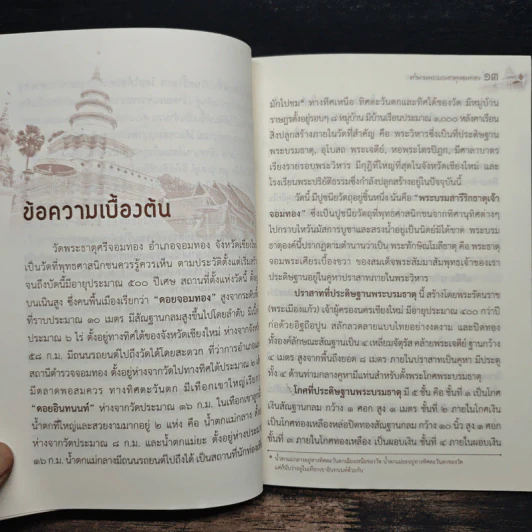 ข้อความเบื้องต้น
วัดพระธาตุศรีจอมทอง อำเภอจอมทอง จังหวัดเชียงให
เป็นวัดที่พุทธศาสนิกชนควรรู้ควรเห็น ตามประวัติตั้งแต่เริ่มสร้
จนถึงบัดนี้มีอายุประมาณ ๕๐๐ ปีเศษ สถานที่ตั้งแห่งวัดนี้ ตั้งอ
บนเนินสูง ซึ่งคนพื้นเมืองเรียกว่า "ดอยจอมทอง" สูงจากระดับพื้
ที่ราบประมาณ ๑๐ เมตร มีสัณฐานกลมสูงขึ้นไปโดยลำดับ มีเนื้อ
ประมาณ ๖ ไร่ ตั้งอยู่ทางทิศใต้ของจังหวัดเชียงใหม่ ห่างจากจัง
๕๘ ก.ม. มีถนนรถยนต์ไปถึงวัดได้โดยสะดวก ที่ว่าการอำเภอแ
สถานีตำรวจจอมทอง ตั้งอยู่ห่างจากวัดไปทางทิศใต้ประมาณ ๒
มีตลาดพอสมควร ทางทิศตะวันตก มีเทือกเขาใหญ่เรีย
"ดอยอินทนนท์" ห่างจากวัดประมาณ ๑๖ ก.ม. ในเทือกเขาลูก
น้ำตกที่ใหญ่และสวยงามมากอยู่ ๒ แห่ง คือ น้ำตกแม่กลาง ตั้ง
ห่างจากวัดประมาณ ๘ ก.ม. และน้ำตกแม่ยะ ตั้งอยู่ห่างประม
๑๖ ก.ม. น้ำตกแม่กลางมีถนนรถยนต์ไปถึงได้ เป็นสถานที่นักท่อง
๑๓
มักไปชม* ทางทิศเหนือ ทิศตะวันตกและทิศใต้ของวัด มีหมู่บ้าน
ราษฎรตั้งอยู่รอบๆ ๘ หมู่บ้าน มีบ้านเรือนประมาณ ๑,๐๐๐ หลังคาเรือน
สิ่งปลูกสร้างภายในวัดที่สำคัญ คือ พระวิหารซึ่งเป็นที่ประดิษฐาน
พระบรมธาตุ, อุโบสถ พระเจดีย์, หอพระไตรปิฎก, มีศาลาบาตร
เรียงรายรอบพระวิหาร มีกุฏิที่ใหญ่ที่สุดในจังหวัดเชียงใหม่ และ
โรงเรียนพระปริยัติธรรมซึ่งกำลังปลูกสร้างอยู่ในปัจจุบันนี้
วัดนี้ มีปูชนียวัตถุอยู่ชิ้นหนึ่ง นั่นคือ "พระบรมสารีริกธาตุเจ้า
จอมทอง" ซึ่งเป็นปูชนียวัตถุที่พุทธศาสนิกชนจากทิศานุทิศต่างๆ
ไปกราบไหว้นมัสการบูชาและสรงน้ำอยู่เป็นนิตย์มิได้ขาด พระบรม
ธาตุองค์นี้ปรากฏตามตำนานว่าเป็น พระทักษิณโมลีธาตุ คือ พระธาตุ
จอมพระเศียรเบื้องขวา ของสมเด็จพระสัมมาสัมพุทธเจ้าของเรา
ประดิษฐานอยู่ในคูหาปราสาทภายในพระวิหาร
ปราสาทที่ประดิษฐานพระบรมธาตุ นี้ สร้างโดยพระรัตนราช
(พระเมืองแก้ว) เจ้าผู้ครองนครเชียงใหม่ มีอายุประมาณ ๔๐๐ กว่าปี
ก่อด้วยอิฐถือปูน สลักลวดลายแบบไทยอย่างงดงาม และปิดทอง
ทั้งองค์ลักษณะสัณฐานเป็น ๔ เหลี่ยมจัตุรัส คล้ายพระเจดีย์ ฐานกว้าง
๔ เมตร สูงจากพื้นถึงยอด ๘ เมตร ภายในปราสาทเป็นคูหา มีประตู
ทั้ง ๔ ด้านท่ามกลางคูหามีแท่นสำหรับตั้งพระโกศพระบรมธาตุ
โกศที่ประดิษฐานพระบรมธาตุ มี ๕ ชั้น คือ ชั้นที่ ๑ เป็นโกศ
เงินสัณฐานกลม กว้าง ๑ ศอก สูง ๑ เมตร ชั้นที่ ๒ ภายในโกศเงิน
เป็นโกศทองเหลืองหล่อปิดทองสัณฐานกลม กว้าง ๑๐ นิ้ว สูง ๑ ศอก
ชั้นที่ ๓ ภายในโกศทองเหลือง เป็นผอบเงิน ชั้นที่ ๔ ภายในผอบเงิน